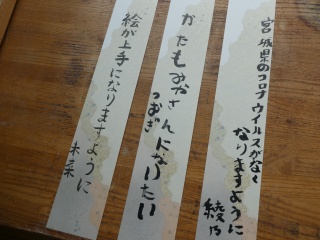 宮城県のコロナウイルスがなく
なりますように
綾乃
かたもみやさんになりたい
つむぎ
絵が上手になりますように
未来